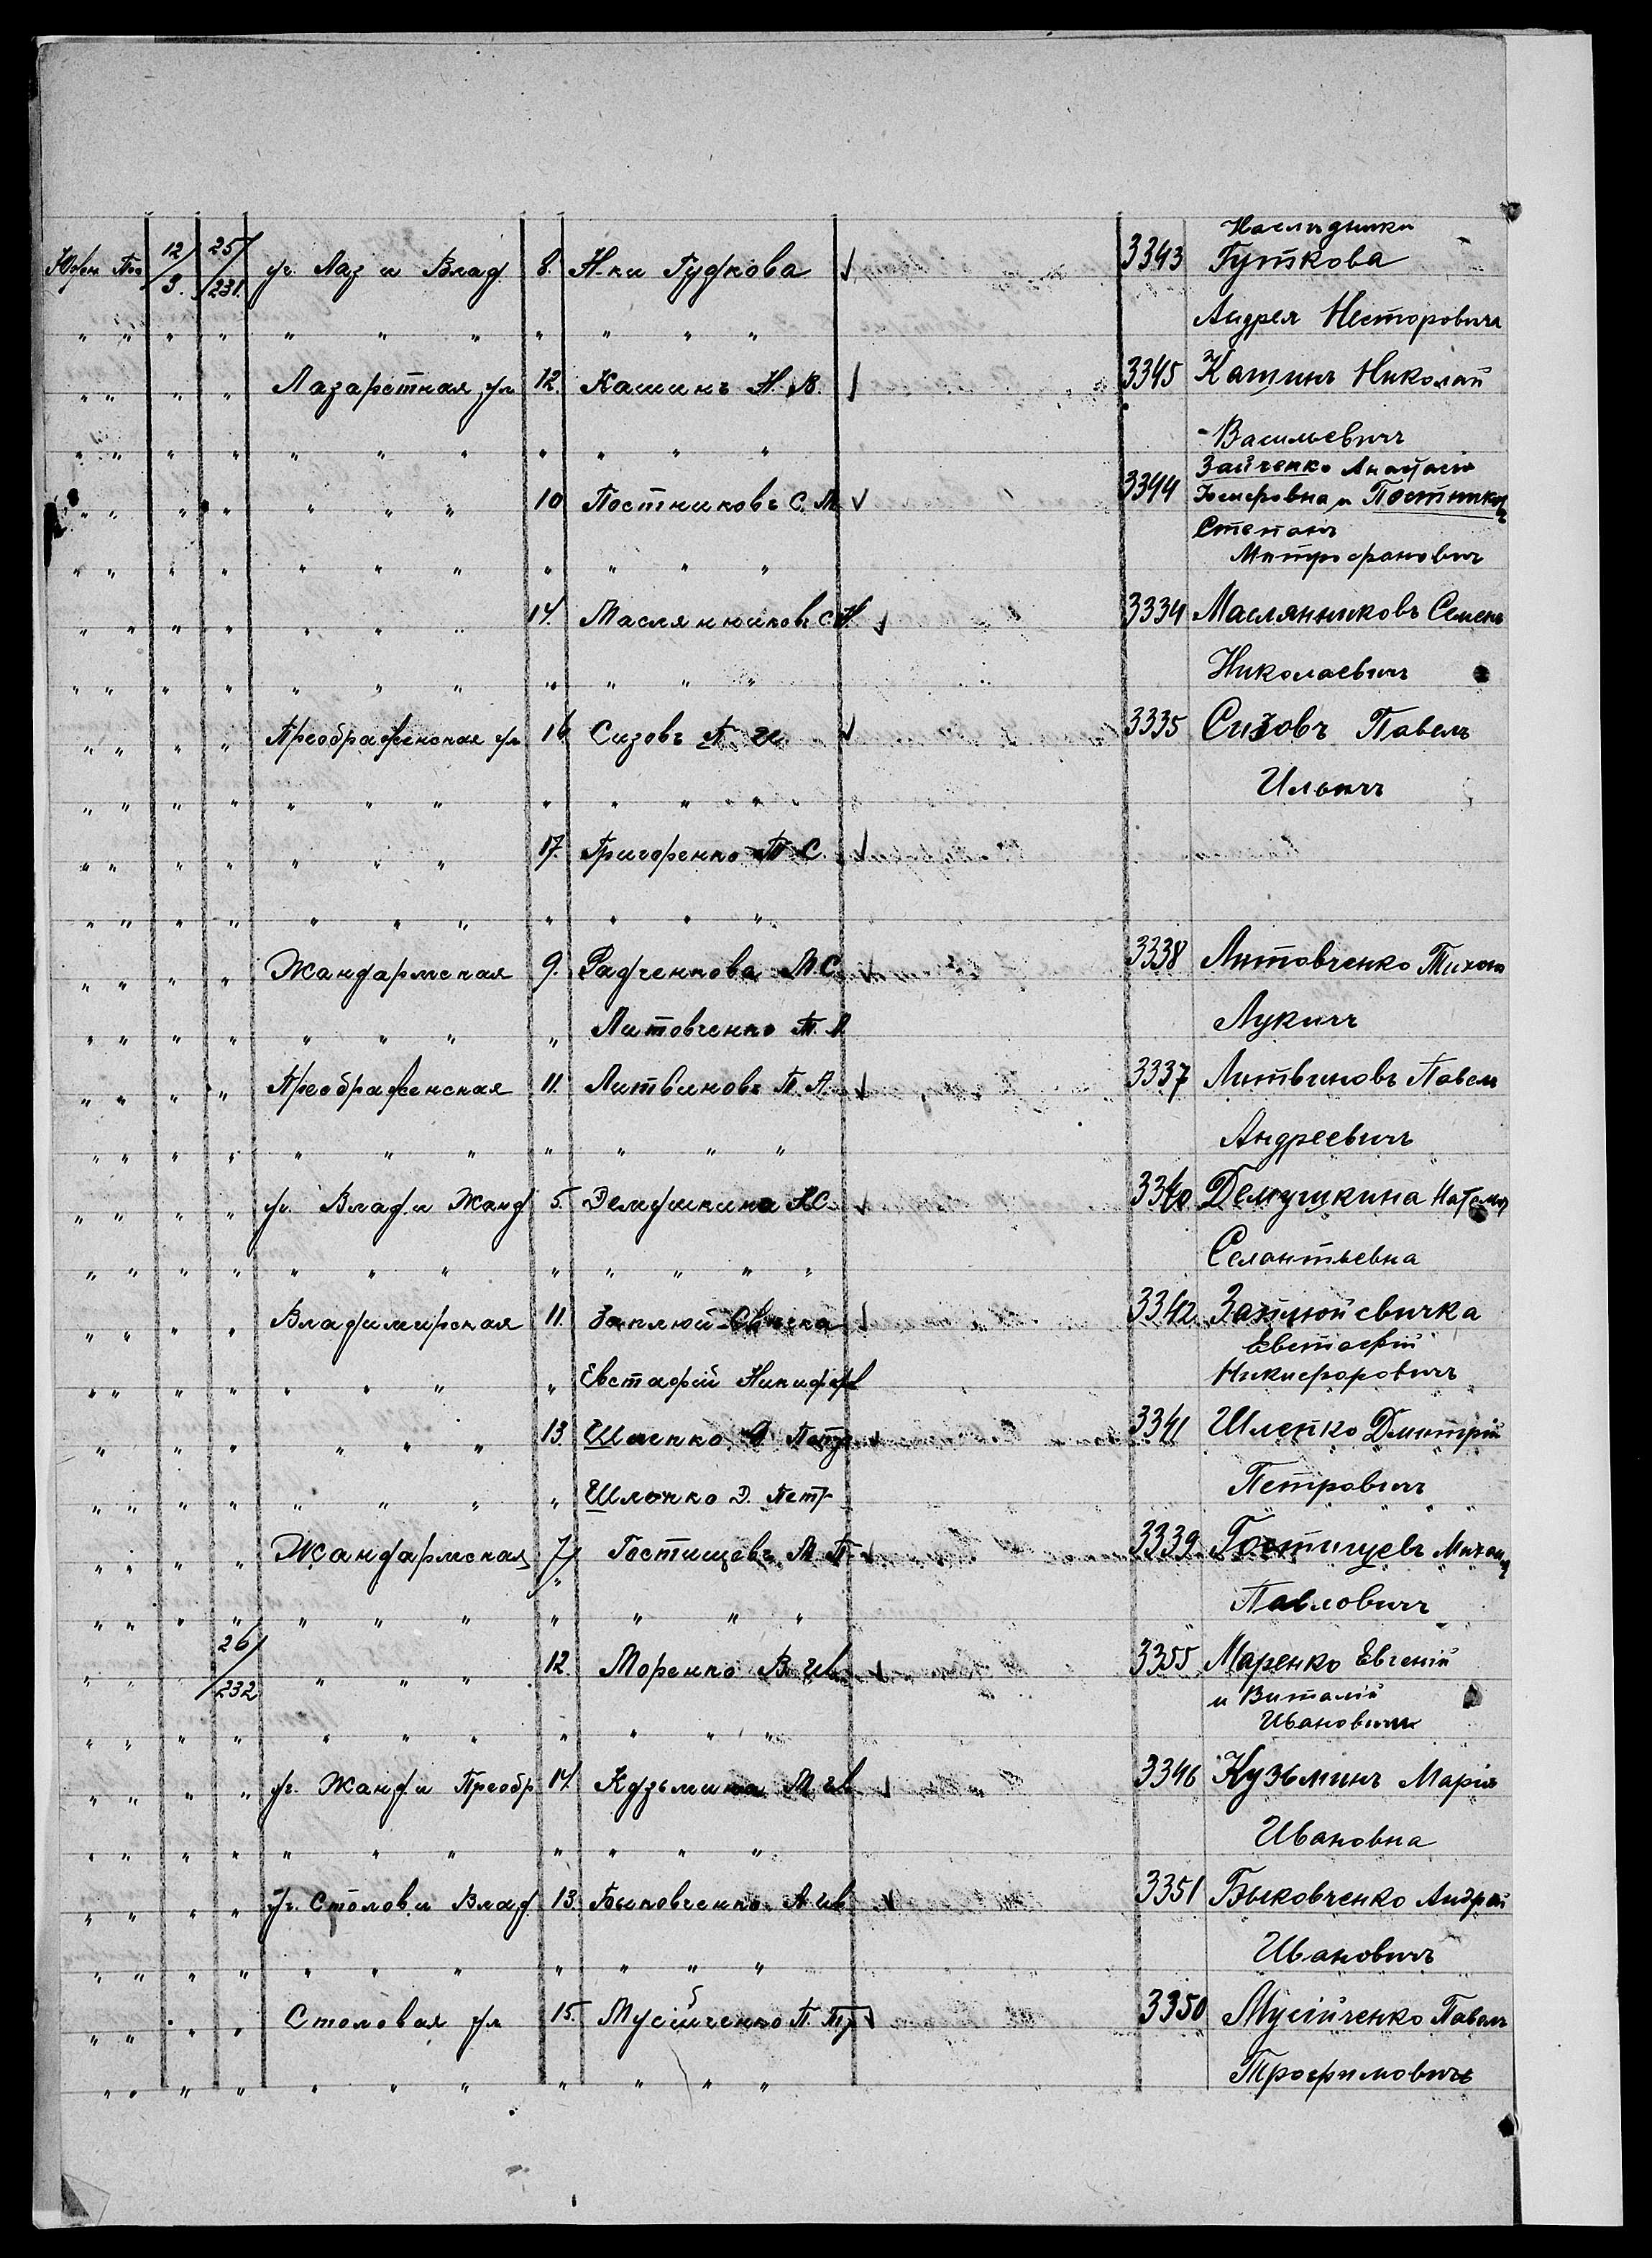 Наслѣдники
Южн Пос 12/3. 25/231. уг. Лаз и Влад. 8. Н-ки Гудкова √ 3343 Гуткова
" " " " " " " " " " " Андрея Несторовича
" " " " Лазаретная ул 12. Кашинъ Н. В. √ 3345 Кашинъ Николай
" " " " " " " " " " " Васильевичъ
Зайченко Анастасія
" " " " " " " 10 Постниковъ С. М √ 3344 Іосифовна и Постников
Степанъ
" " " " " " " " " " " Митрофановичъ
" " " " " " " 14. Маслянниковъ С. Н. √ 3334 Маслянниковъ Семенъ
" " " " " " " " " " " Николаевичъ
" " " " Преображенская ул 16 Сизовъ П. И. √ 3335 Сизовъ Павелъ
" " " " " " " " " " " Ильичъ
" " " " " " " 17. Григоренко П. С. √
" " " " " " " " " " "
" " " " Жандармская 9. Радченкова М. С. √ 3338 Литовченко Тихон
" " " " " " " " Литовченко Т. Л. Лукичъ
" " " " Преображенская 11. Литвиновъ П. А. √ 3337 Литвиновъ Павелъ
" " " " " " " " " " " Андреевичъ
" " " " уг. Влад. и Жанд 5. Демушкина Н. С. √ 3340 Демушкина Наталья
" " " " " " " " " " " " Селантьевна
" " " " Владимирская 11. Заплюй-Свѣчка √ 3342 Заплюйсвичка
Евстафій
" " " " " " " " Евстафій Никифор Никифоровичъ
" " " " " " 13. Шленко Д. Петр √ 3341 Шленко Дмитрій
" " " " " " " " Шленко Д. Петр Петровичъ
" " " " Жандармская 7/" Гостищевъ М. П. √ 3339 Гостищевъ Михаил
" " " " " " " " " " " Павловичъ
" " " 26/232 " " " 12 Моренко В. Ив √ 3355 Маренко Евгеній
и Виталій
" " " " " " " " " " " Ивановичи
" " " " уг. Жанд. и Преобр 14. Кузьмина М. Ив √ 3346 Кузьминъ Марія
" " " " " " " " " " " Ивановна
" " " " уг. Столов и Влад 13. Быковченко А. Ив √ 3351 Быковченко Андрей
" " " " " " " " " " " Ивановичъ
" " " " Столовая ул 15. Мусійченко П. Тр √ 3350 Мусійченко Павелъ
" " " " " " " " " " " Трофимовичъ